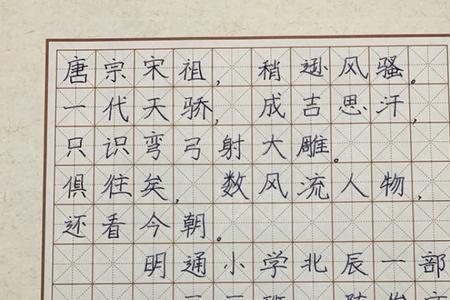 唐宗宋祖,稍逊风骚。
一代天骄,成吉思汗,
只识弯弓射大雕。
俱往矣,数风流人物,
还看今朝。
明通小学北辰一部